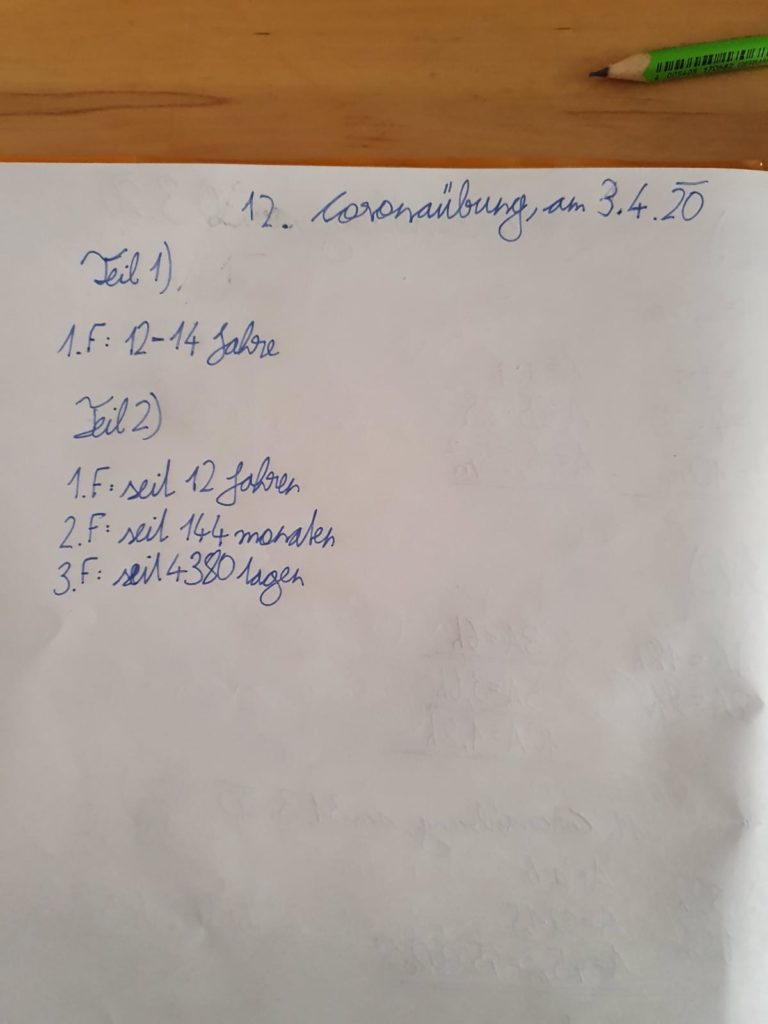 12. Coronaübung, am 3.4.20
Teil 1)
1.F: 12-14 Jahre
Teil 2)
1.F: seit 12 Jahren
2.F: seit 144 monaten
3.F: seit 4380 tagen